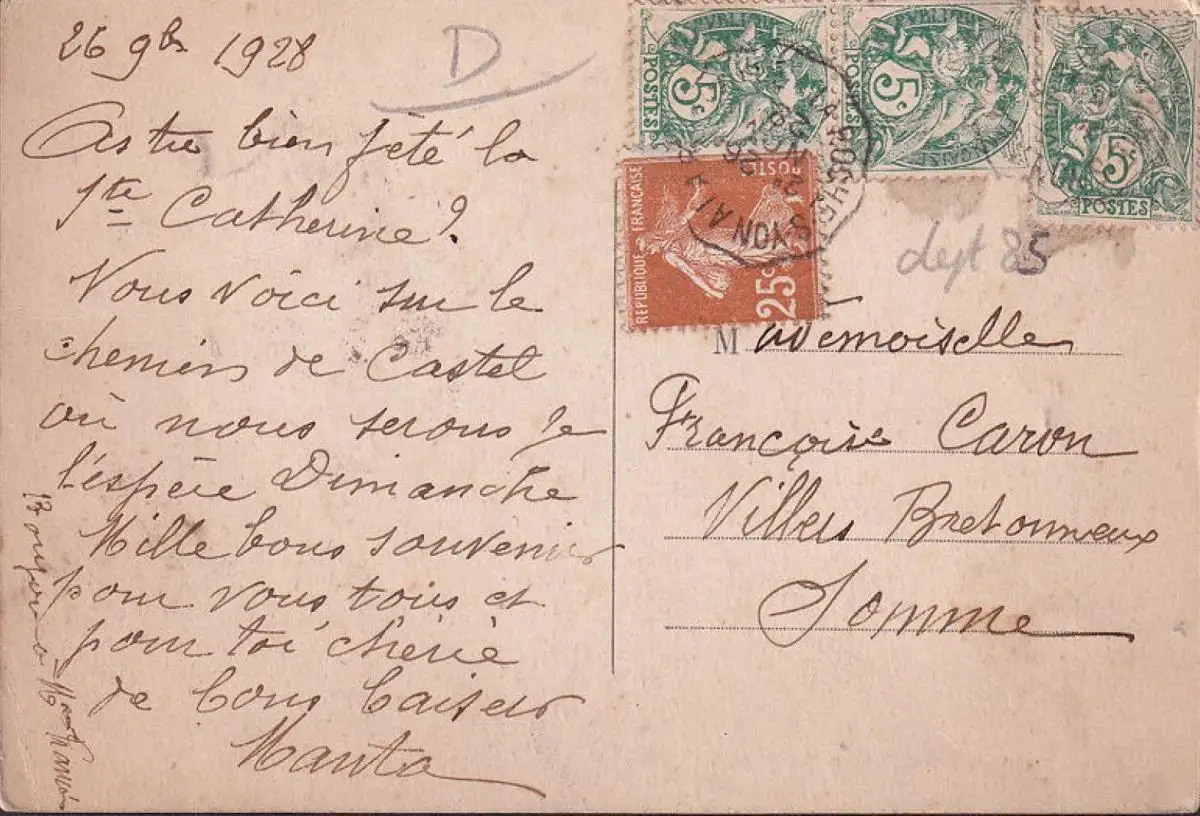 26 9bre 1928
D
As tu bien fêté la
Ste Catherine ?
Vous voici sur le
chemin de Castel
où nous serons je
l'espère Dimanche
Mille bons souvenirs
pour vous tous et
pour toi chérie
de bons baisers
Manta
Bonjour a
POSTES 5c
POSTES 5c
5c POSTES
REPUBLIQUE FRANÇAISE
POSTES
25c
dept 85
Mademoiselle
Françoise Caron
Villers Bretonneux
Somme